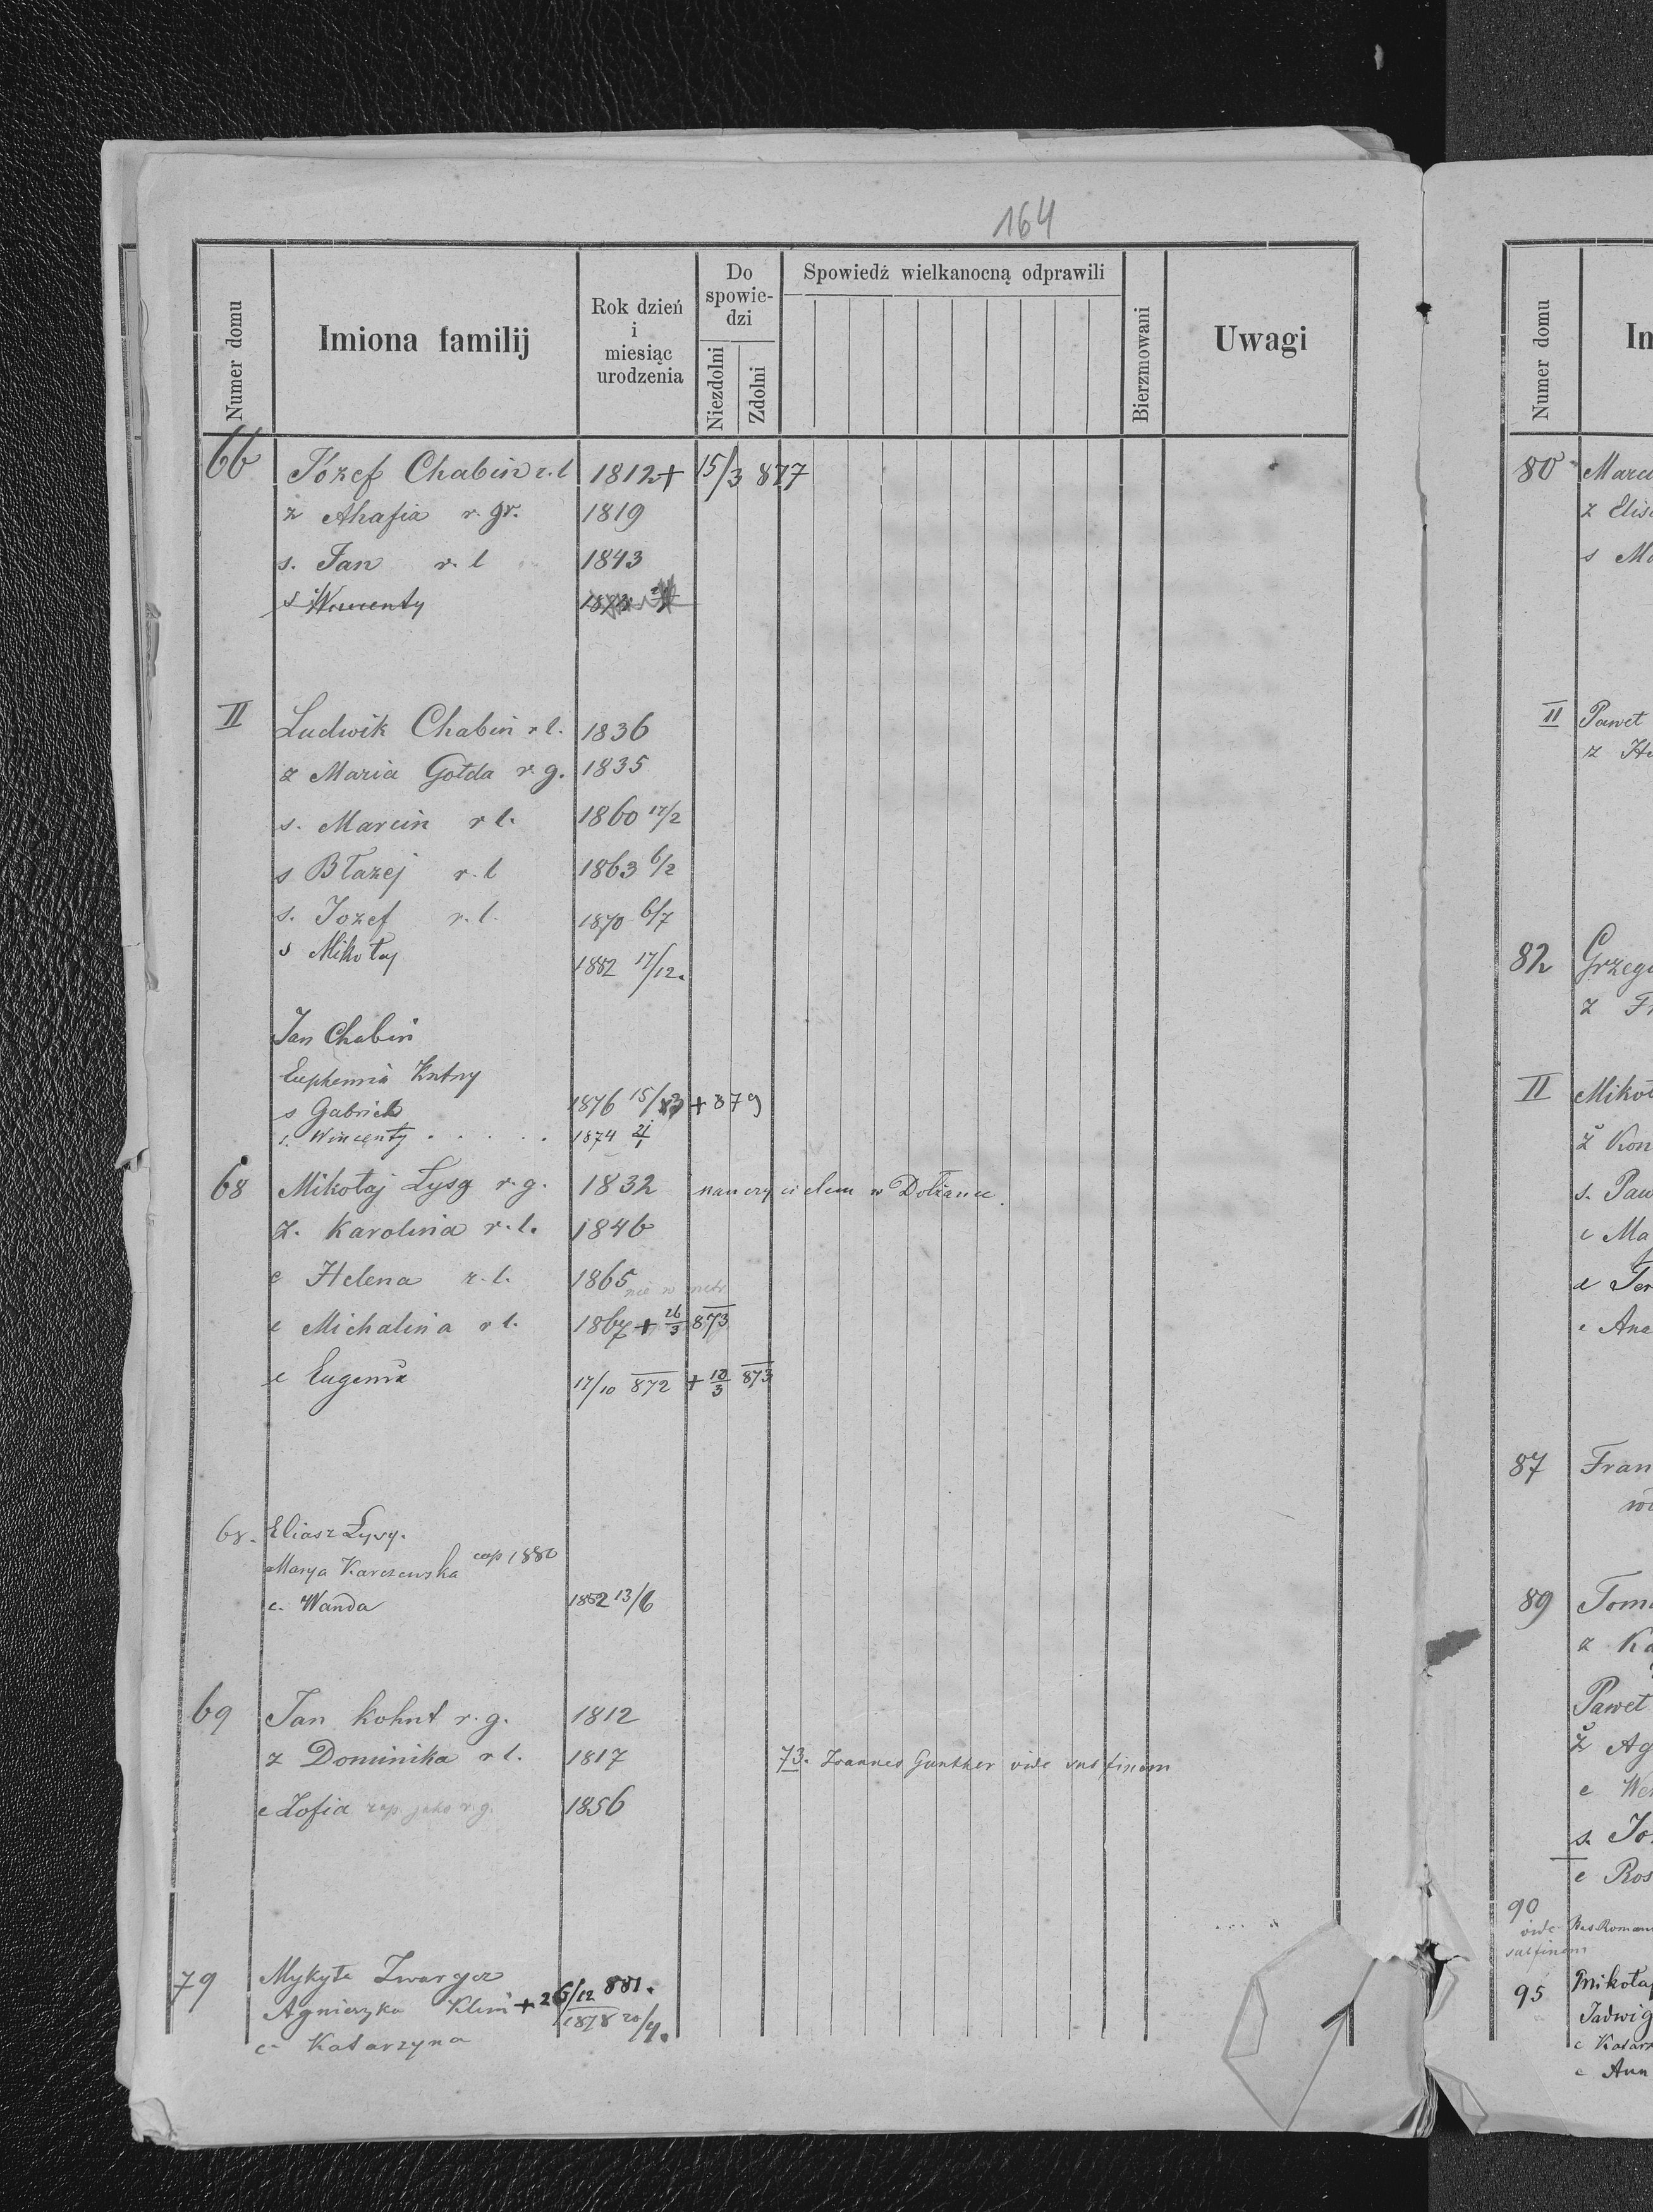 164
Numer domu
Imiona familij
Rok dzień i miesiąc urodzenia
Do spowie-dzi
Niezdolni
Zdolni
Spowiedź wielkanocną odprawili
Bierzmowani
Uwagi
66 Józef Chabin r.l 1812 + 15/3 877
z Ahafia r. gr. 1819
s. Jan r. l 1843
s Wincenty
II Ludwik Chabin r l. 1836
z Maria Gołda r. g. 1835
s. Marcin r l. 1860 17/2
s Błazej r. l 1863 6/2
s. Jozef r. l. 1870 6/7
s Mikołaj 1882 17/12.
Jan Chabin
Euphemia
s Gabriel 1876 15/ + 879
s. Wincenty . . . . . 1874 21/1
68 Mikołaj Łysy r. g. 1832 nauczycielem w Dołżance.
z. Karolina r. l. 1846
c Helena r. l. 1865 nie w metr.
c Michalina r l. 1867 + 26/3 873
c Eugenia 17/10 872 + 12/3 873
68. Eliasz Łysy.
Marya Karczewska cop 1880
c. Wanda 1882 13/6
69 Jan Kohut r. g. 1812
z Dominika r l. 1817
73. Joannes Gunther vide sub finem
c Zofia zap. jako r. g. 1856
79 Mykyta Zwarycz
Agnieszka Klim + 26/12 881.
c. Katarzyna 1878 20/4.
Numer domu
80
z
s
II Paweł
z
82
z
II
ż
s.
c
c
c
87
89
z
Paweł
ż
c
s.
c
90
vide
sub finem
95
c
c